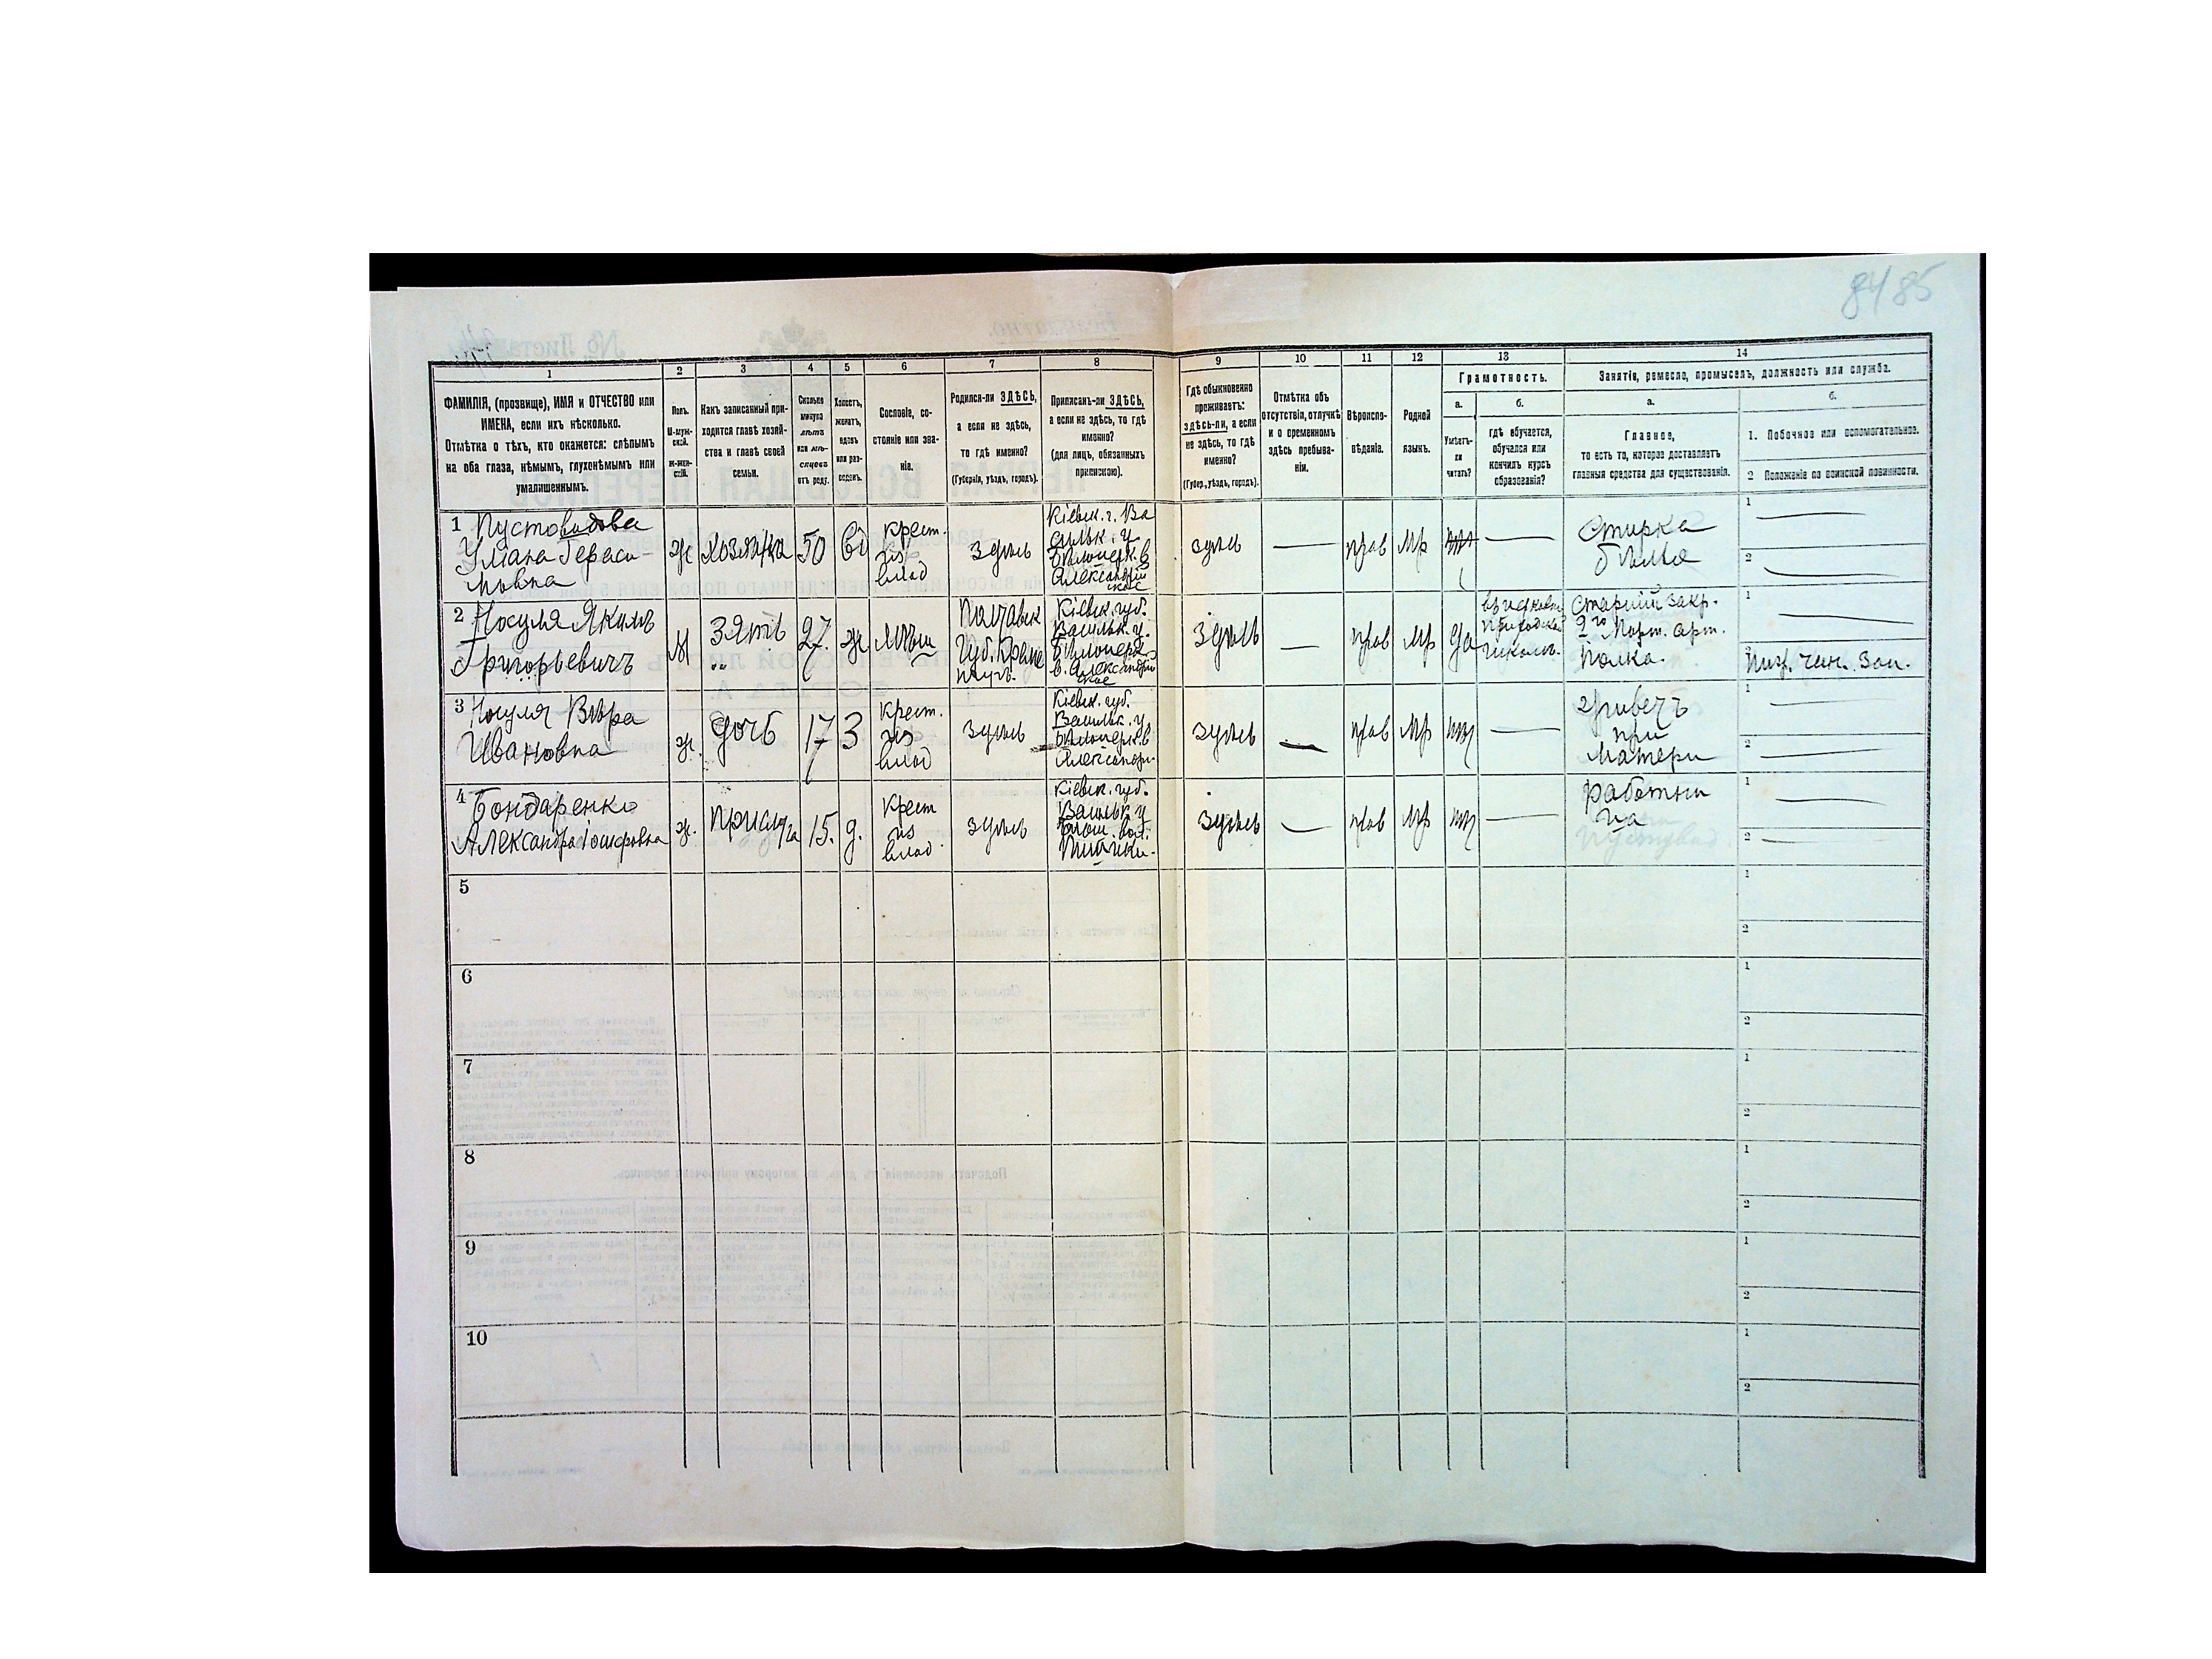 84 85
1
2
3
4
5
6
7
8
9
10
11
12
13
14
ФАМИЛІЯ, (прозвище), ИМЯ и ОТЧЕСТВО или
ИМЕНА, если ихъ нѣсколько.
Отмѣтка о тѣхъ, кто окажется: слѣпымъ
на оба глаза, нѣмымъ, глухонѣмымъ или
умалишеннымъ.
Полъ.
М-муж-
ской.
Ж-жен-
скій.
Какъ записанный при-
ходится главѣ хозяй-
ства и главѣ своей
семьи.
Сколько
минуло
лѣтъ
или мѣ-
сяцевъ
отъ роду.
Холостъ,
женатъ,
вдовъ
или раз-
веденъ.
Сословіе, со-
стояніе или зва-
ніе.
Родился-ли ЗДѢСЬ,
а если не здѣсь,
то гдѣ именно?
(Губернія, уѣздъ, городъ).
Приписанъ-ли ЗДѢСЬ,
а если не здѣсь, то гдѣ
именно?
(для лицъ, обязанныхъ
припискою).
Гдѣ обыкновенно
проживаетъ:
здѣсь-ли, а если
не здѣсь, то гдѣ
именно?
(Губер., уѣздъ, городъ).
Отмѣтка объ
отсутствіи, отлучкѣ
и о временномъ
здѣсь пребыва-
ніи.
Вѣроиспо-
вѣданіе.
Родной
языкъ.
Грамотность.
а.
б.
Умѣетъ-
ли
читать?
гдѣ обучается,
обучался или
кончилъ курсъ
образованія?
Занятіе, ремесло, промыселъ, должность или служба.
а.
б.
Главное,
то есть то, которое доставляетъ
главныя средства для существованія.
1. Побочное или вспомогательное.
2 Положеніе по воинской повинности.
1 Пустовидова
Уліана Гераси
мовна
ж
хозяйка
50
вд
крест.
из
влад
здѣсь
Кіевск. г. Ва
сильк. у
Бѣлоцерк. в
Александрій
ское
здѣсь
прав
мр
Стирка
бѣлья
1
2
2 Носуля Якимъ
Григорьевичъ
М
зять
27.
ж
мѣщ
Полтавск
губ. Креме
нчуг.
Кіевск. губ.
Васильк. у.
Бѣлоцерк
в. Александрій
ское
здѣсь
прав
мр
да
въ церковно
приходской
школѣ.
Старшій закр.
2го Морт. арт.
полка.
1
2
Ниж. чин. зап.
3 Носуля Вѣра
Ивановна
ж.
дочь
17
З
крест.
из
влад
здѣсь
Кіевск. губ.
Васильк. у.
Бѣлоцерк. в
Александр.
здѣсь
прав
мр
нѣт
живетъ
при
матери
1
2
4 Бондаренко
Александра Іосифовна
ж.
прислуга
15.
д.
крест
из
влад.
здѣсь
Кіевск. губ.
Васильк. у
вол.
здѣсь
прав
мр
нѣт
работни
ца
1
2
5
1
2
6
1
2
7
1
2
8
1
2
9
1
2
10
1
2